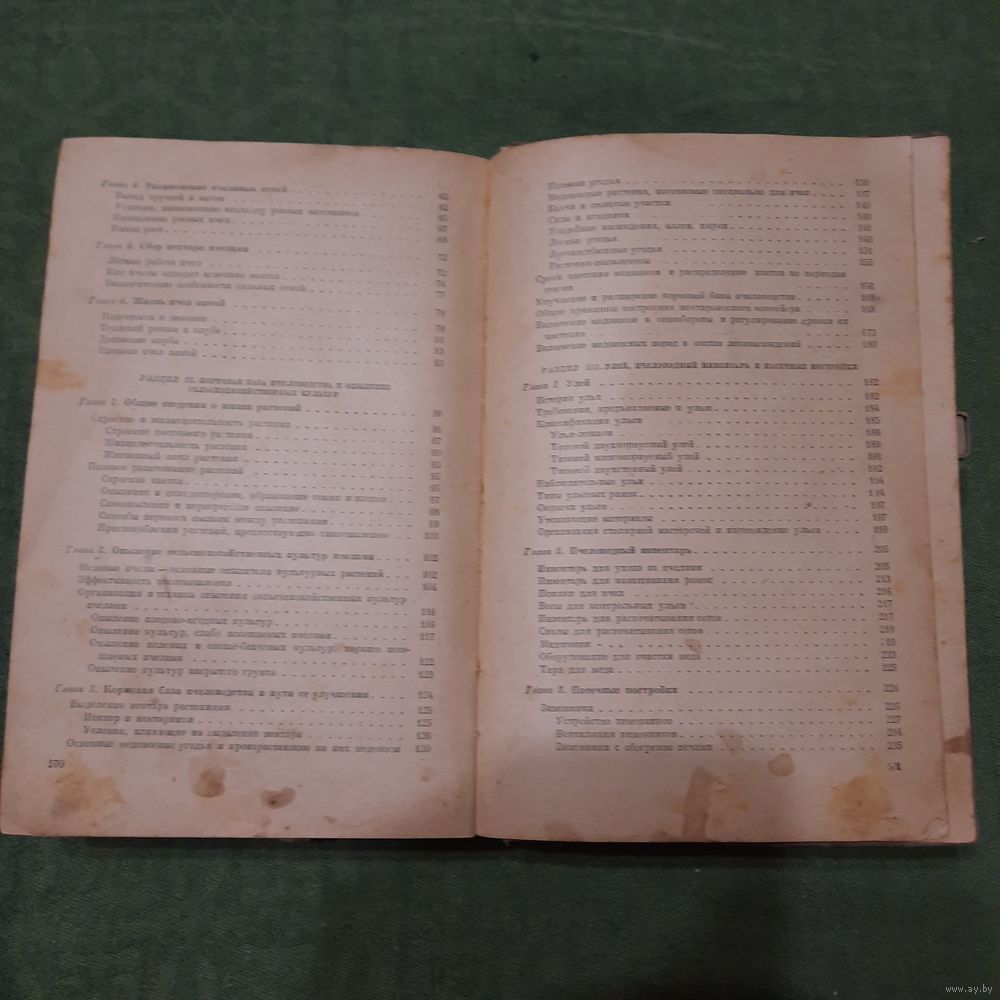 Глава 4. Размножение пчелиных семей
Вывод трутней и маток 62
Выход роя
Глава 5. Сбор нектара пчелами
Лётная работа пчел 72
Биологические особенности сильных семей 77
Глава 6. Жизнь пчел зимой
Подготовка к зимовке
Тепловой режим в клубе
Движение клуба
Питание пчел зимой
РАЗДЕЛ II. КОРМОВАЯ БАЗА ПЧЕЛОВОДСТВА И ОПЫЛЕНИЕ
СЕЛЬСКОХОЗЯЙСТВЕННЫХ КУЛЬТУР
Глава 1. Общие сведения о жизни растений
Строение и жизнедеятельность растения
Строение цветкового растения
Жизнедеятельность растений
Жизненный цикл растения
Половое размножение растений
Строение цветка
Опыление и оплодотворение, образование семян и плодов
Самоопыление и перекрестное опыление
Способы переноса пыльцы между растениями
Приспособления растений, препятствующие самоопылению
Глава 2. Опыление сельскохозяйственных культур пчелами 102
Медовые пчелы — основные опылители культурных растений 102
Эффективность пчелоопыления 106
Организация и техника опыления сельскохозяйственных культур
пчелами 116
Опыление плодово-ягодных культур 116
Опыление культур, слабо посещаемых пчелами 117
Опыление полевых и овоще-бахчевых культур, хорошо посе-
щаемых пчелами 122
Опыление культур закрытого грунта 123
Глава 3. Кормовая база пчеловодства и пути ее улучшения 124
Выделение нектара растениями 125
Нектар и нектарники 125
Условия, влияющие на выделение нектара 126
Основные медоносные угодья и произрастающие на них медоносы 130
570
Полевые угодья 130
Медоносные растения, высеваемые специально для пчел 137
Бахчи и овощные участки 140
Сады и ягодники
Усадебные насаждения, аллеи, парки
Лесные угодья
Луго-пастбищные угодья 151
Растения-пыльценосы 155
Сроки цветения медоносов и распределение взятка по периодам
сезона
Улучшение и расширение кормовой базы пчеловодства
Общие принципы построения нектарного конвейера 168
Включение медоносов в севообороты и регулирование сроков их
цветения 173
Включение медоносных пород в состав лесонасаждений 180
РАЗДЕЛ III. УЛЕЙ, ПЧЕЛОВОДНЫЙ ИНВЕНТАРЬ И ПАСЕЧНЫЕ ПОСТРОЙКИ
Глава 1. Улей 182
История улья 182
Требования, предъявляемые к улью 184
Классификация ульев 185
Ульи-лежаки 186
Типовой двухкорпусный улей 189
Типовой многокорпусный улей 191
Типовой двухстенный улей 192
Наблюдательные ульи 194
Типы ульевых рамок 194
Окраска ульев 197
Утепляющие материалы 197
Организация столярной мастерской и изготовление ульев 199
Глава 2. Пчеловодный инвентарь 205
Инвентарь для ухода за пчелами 205
Инвентарь для наващивания рамок 213
Поилки для пчел 216
Весы для контрольных ульев 217
Инвентарь для распечатывания сотов 217
Столы для распечатывания сотов 218
Медогонки
Оборудование для очистки меда 223
Тара для меда 225
Глава 3. Пасечные постройки 226
Зимовники 226
Устройство зимовников 227
Вентиляция зимовников 234
Зимовники с обогревом печами 235
571
www.ay.by